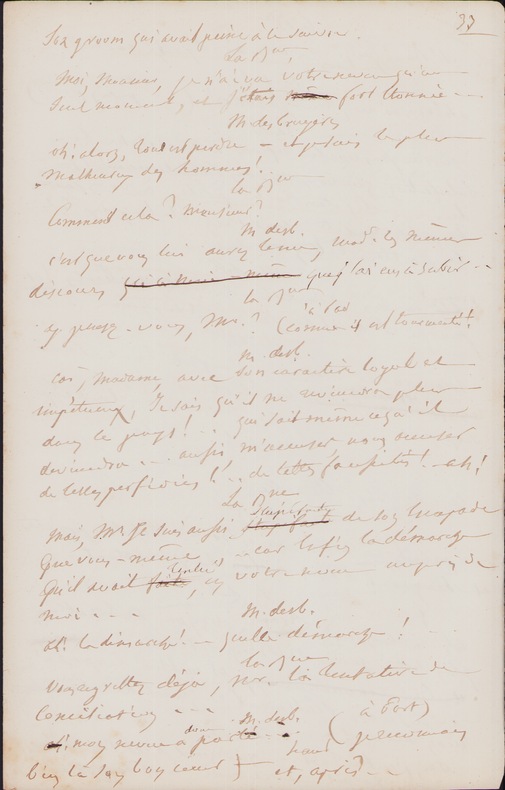 33
Son groom qui avait peine à le suivre.
La Bne
Moi, Monsieur, je n'ai vu votre neveu qu'un
seul moment, et j'étais fort étonnée ...
M. des Bruyères
oh! alors, tout est perdu — et je suis le plus
malheureux des hommes!
La Bne
Comment cela? Monsieur?
M. desb.
c'est que vous lui aurez tenu, mad. les mêmes
discours que j'ai eus à subir ...
La Bne
y pensez-vous, Mr.? (comme il a l'air tourmenté!
M. desb.
car, Madame, avec son caractère loyal et
impétueux, Je sais qu'il ne reviendra plus
dans le pays! .. qui sait même ce qu'il
deviendra ... aussi m'accuser, nous accuser
de telles perfidies! .. de telles faussetés! ah!
La Bne
mais, Mr. Je suis aussi de son escapade
que vous-même ... car enfin la démarche
qu'il avait tentée, votre neveu auprès de
moi ...
M. desb.
oh. la démarche! — quelle démarche!
La Bne
vous regrettez déjà, Mr. la tentative de
conciliation ...
M. desb. (à part)
mon neveu a donc parlé ... je reconnais
bien là son bon cœur) haut
et, après ...